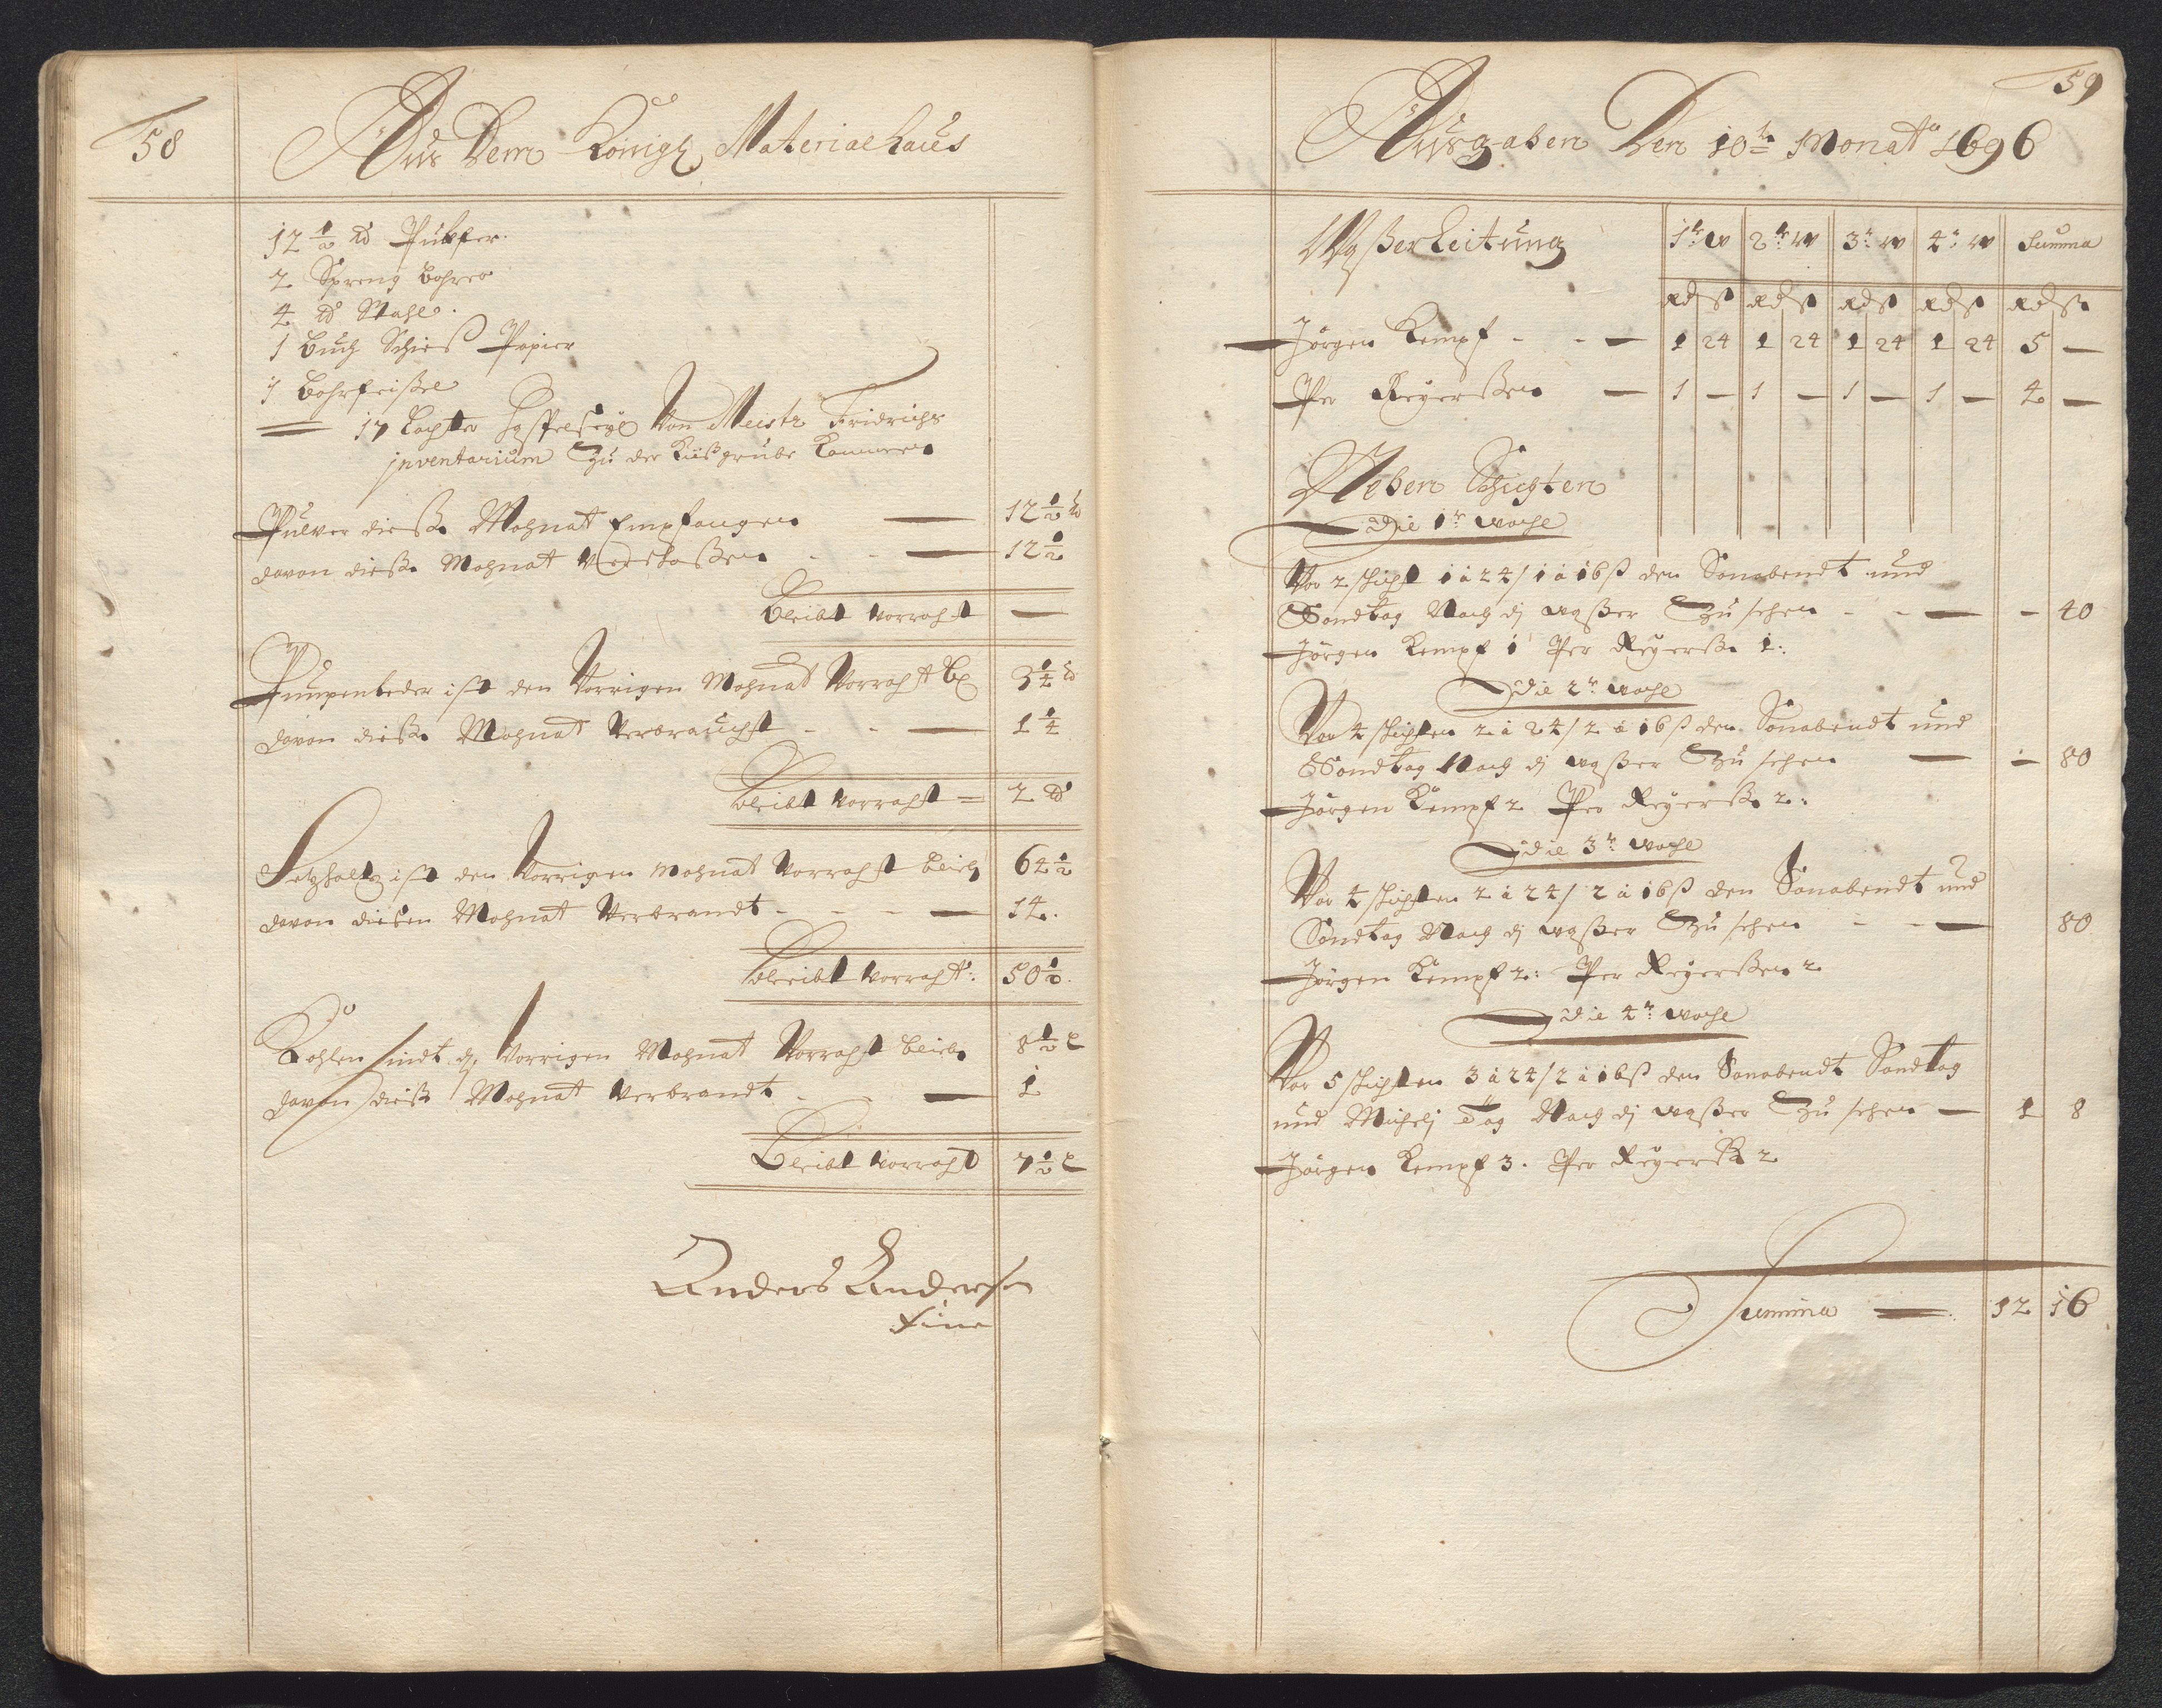 58
Aus Dem Königl Materialhaus
12 1/2 ℔ Pulffer.
2 Spreng bohrer
4 ℔ Stahl.
1 buch Schies Papier
1 bohrfeistel
17 Lachter haspelseyl Von Meistr Fridrichs
jnventarium Zu der Kiisgrube kommen
Pulver diesse Mohnat Empfangen — 12 1/2 ℔
davon diesse Mohnat Verschossen - - — 12 1/2
bleibt vorraht —
Pumpenleder ist den Vorrigen Mohnat Vorraht bl 3 1/4 ℔
davon diesse Mohnat Verbraucht - - — 1 1/4
bleibt vorraht = 2 ℔
Setzholtz ist den Vorrigen Mohnat Vorraht bleib 64 1/2
davon diesen Mohnat Verbrandt - - - — 14.
bleibt vorraht: 50 1/2.
Kohlen sindt d. Vorrigen Mohnat Vorraht bleib 8 1/2 L
davon diesse Mohnat Verbrandt - - — 1
Bleibt vorraht 7 1/2 L
Anders Anderssen
59
Ausgaben Den 10te Monat 1696
Wasserleitung 1te W 2te W 3te W 4te W Summa
Rd ß Rd ß Rd ß Rd ß Rd ß
Jörgen Kempf - - — 1 24 1 24 1 24 1 24 5 —
Per Reyerssen — 1 — 1 — 1 — 1 — 4 —
Neben Schichten
Die 1te woche
Vor 2 schicht 1 à 24 / 1 à 16 ß den Sonabendt und
Sondtag Nach dj wasser Zu sehen - - — - 40
Jörgen Kempf 1 Per Reyerss 1:
Die 2te woche
Vor 4 schichten 2 à 24 / 2 à 16 ß den Sonabendt und
Sondtag Nach dj wasser Zu sehen — - 80
Jörgen Kempf 2 Per Reyerss 2:
Die 3te woche
Vor 4 schichten 2 à 24 / 2 à 16 ß den Sonabendt und
Sondtag Nach dj wasser Zu sehen - - — 80
Jörgen Kempf 2: Per Reyerssen 2
Die 4te woche
Vor 5 schichten 3 à 24 / 2 à 16 ß den Sonabendt Sondtag
und Michelj Tag Nach dj wasser Zu sehen — 1 8
Jörgen Kempf 3. Per Reyerss 2
Summa — 12 16